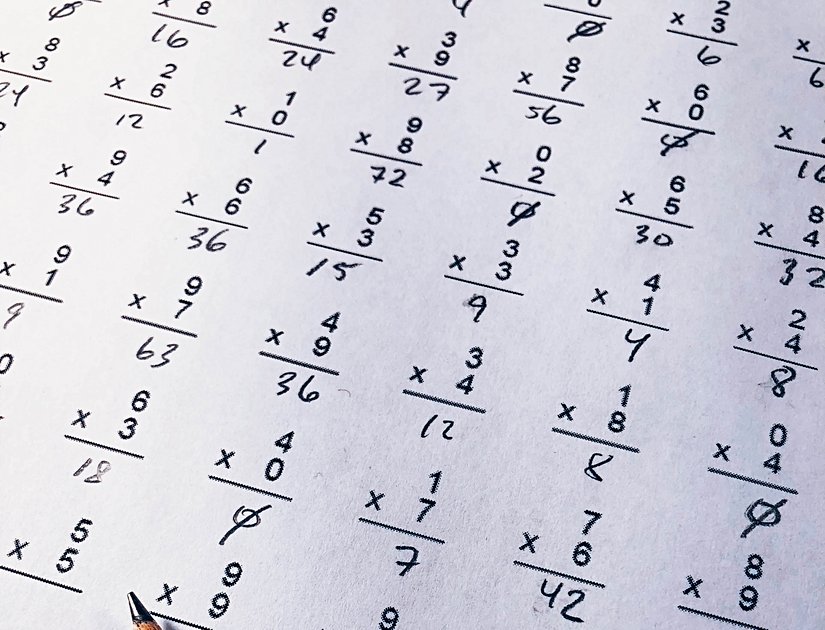 2
x 3 x
Ø Ø 6 6
8 6 3 8 6
x 8 x 4 x 9 x 7 x 0 x
16 24 27 56 Ø 16
8 2 1 9 0 6 8
x 3 x 6 x 0 x 8 x 2 x 5 x 4
24 12 1 72 Ø 30 32
9 6 5 3 4 2
x 4 x 6 x 3 x 3 x 1 x 4
36 36 15 9 4 8
9 9 4 3 1 0
x 1 x 7 x 9 x 4 x 8 x 4
9 63 36 12 8 Ø
0 6 4 1 7 8
x 3 x 0 x 7 x 6 x 9
18 Ø 7 42
5 9 9
x 5 x 9